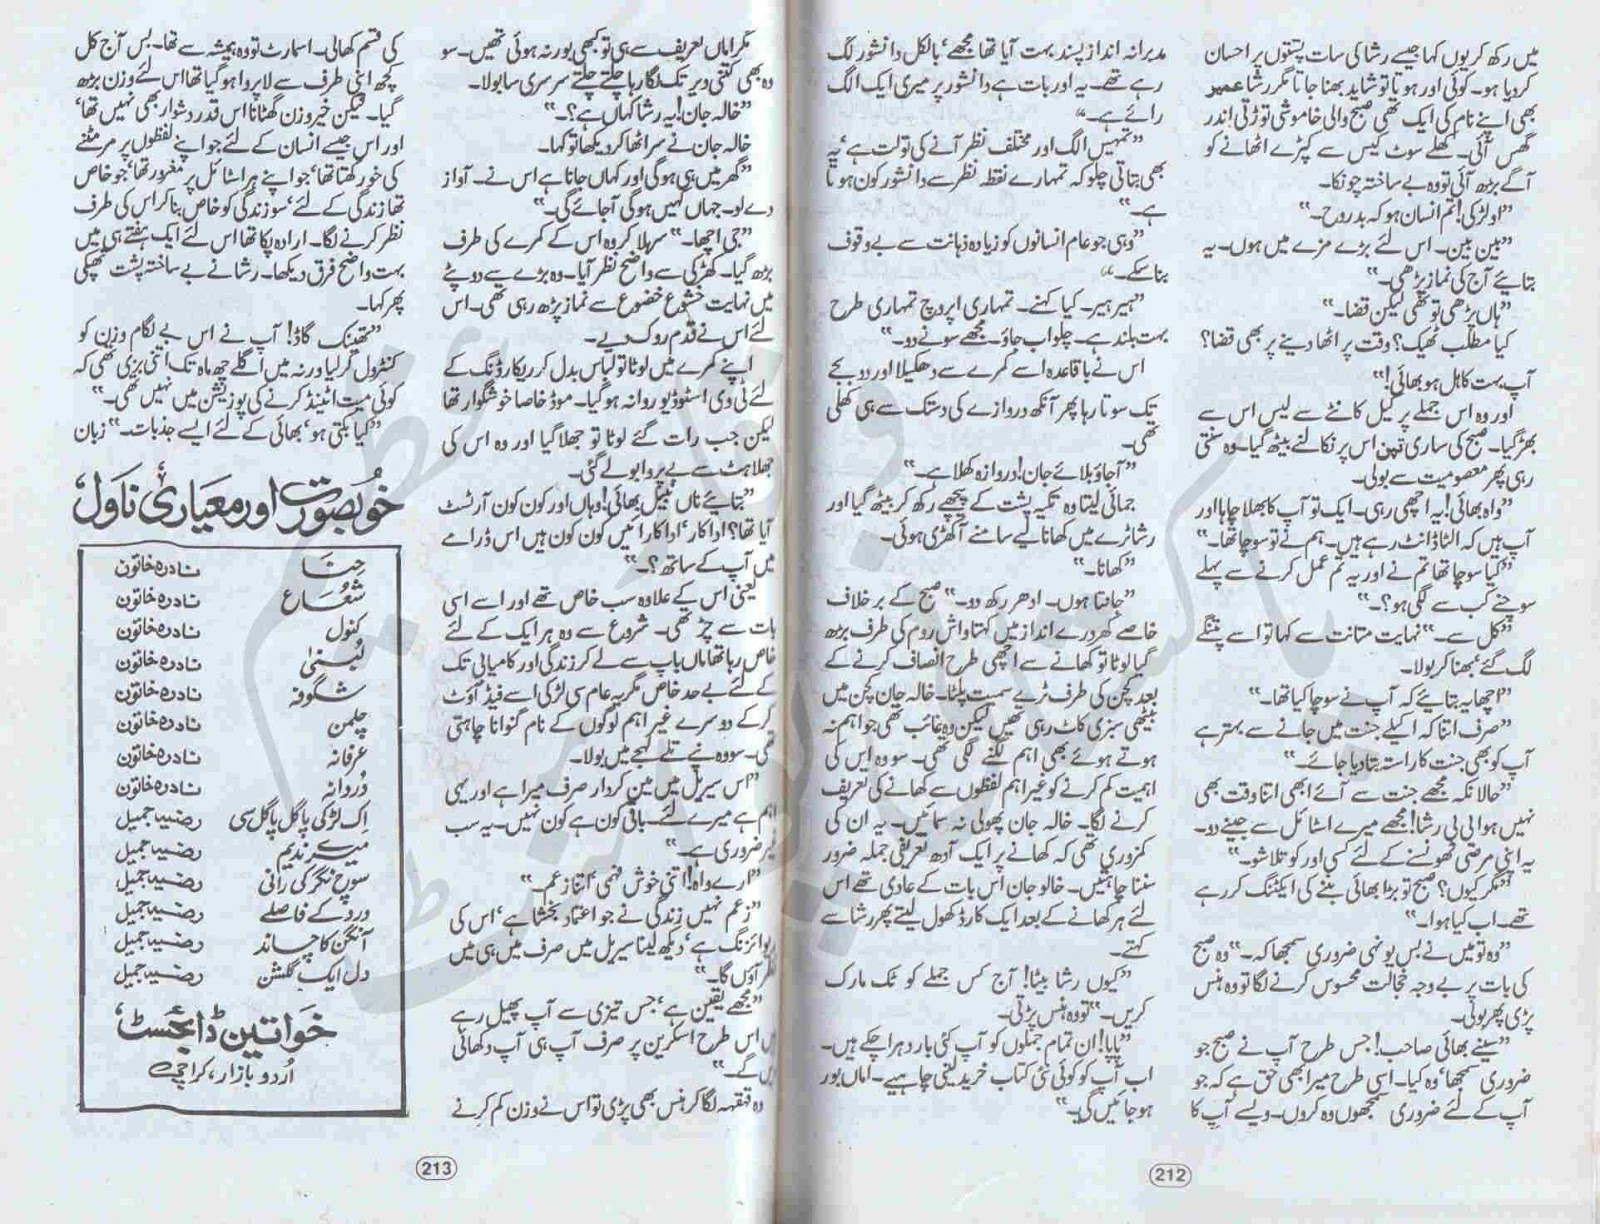 میں رکھ کر یوں کہا جیسے رشا کی سات پشتوں پر احسان
کردیا ہو۔ کوئی اور ہوتا تو شاید بھنا جاتا مگر رشا عمیر
بھی اپنے نام کی ایک تھی صبح والی خاموشی توڑتی اندر
گھس آئی۔ کھلے سوٹ کیس سے کپڑے اٹھانے کو
آگے بڑھ آئی تو وہ بے ساختہ چونکا۔
”او لڑکی! تم انسان ہو کہ بدروح۔“
”بین بین۔ اس لئے بڑے مزے میں ہوں۔ یہ
بتائیے آج کی نماز پڑھی۔“
”ہاں پڑھی تو تھی لیکن قضا۔“
کیا مطلب ٹھیک؟ وقت پر اٹھا دینے پر بھی قضا؟
آپ بہت کاہل ہو بھائی!“
اور وہ اس جملے پر کیل کانٹے سے لیس اس سے
بھڑ گیا۔ صبح کی ساری اس پر نکالنے بیٹھ گیا۔ وہ سنتی
رہی پھر معصومیت سے بولی۔
”واہ بھائی! یہ اچھی رہی۔ ایک تو آپ کا بھلا چاہا اور
آپ ہیں کہ الٹا ڈانٹ رہے ہیں۔ ہم نے تو سوچا تھا۔“
”کیا سوچا تھا تم نے اور یہ تم عمل کرنے سے پہلے
سوچنے کب سے لگی ہو؟۔“
”کل سے۔“ نہایت متانت سے کہا تو اسے پتنگے
لگ گئے‘ بھنا کر بولا۔
”اچھا یہ بتائیے کہ آپ نے سوچا کیا تھا۔“
”صرف اتنا کہ اکیلے جنت میں جانے سے بہتر ہے
آپ کو بھی جنت کا راستہ بتا دیا جائے۔“
”حالانکہ مجھے جنت سے آئے ابھی اتنا وقت بھی
نہیں ہوا بی بی رشا! مجھے میرے اسٹائل سے جینے دو۔
یہ اپنی مرضی ٹھونسنے کے لئے کسی اور کو تلاشو۔“
”مگر کیوں؟ صبح تو بڑا بھائی بننے کی ایکٹنگ کر رہے
تھے۔ اب کیا ہوا۔“
”وہ تو میں نے بس یونہی ضروری سمجھا کہ۔“ وہ صبح
کی بات پر بے وجہ خجالت محسوس کرنے لگا تو وہ ہنس
پڑی پھر بولی۔
”سنیے بھائی صاحب! جس طرح آپ نے صبح جو
ضروری سمجھا‘ وہ کیا۔ اسی طرح میرا بھی حق ہے کہ جو
آپ کے لئے ضروری سمجھوں وہ کروں۔ ویسے آپ کا
مدبرانہ انداز پسند بہت آیا تھا مجھے‘ بالکل دانشور لگ
رہے تھے۔ یہ اور بات ہے دانشور پر میری ایک الگ
رائے ہے۔“
”تمہیں الگ اور مختلف نظر آنے کی تو لت ہے‘ یہ
بھی بتاتی چلو کہ تمہارے نقطہ نظر سے دانشور کون ہوتا
ہے۔“
”وہی جو عام انسانوں کو زیادہ ذہانت سے بے وقوف
بنا سکے۔“
”ہیر ہیر۔ کیا کہنے۔ تمہاری اپروچ تمہاری طرح
بہت بلند ہے۔ چلو اب جاؤ۔ مجھے سونے دو۔“
اس نے باقاعدہ اسے کمرے سے دھکیلا اور دو بجے
تک سوتا رہا پھر آنکھ دروازے کی دستک سے ہی کھلی
تھی۔
”آجاؤ بلائے جان! دروازہ کھلا ہے۔“
جمائی لیتا وہ تکیہ پشت کے پیچھے رکھ کر بیٹھ گیا اور
رشا ٹرے میں کھانا لیے سامنے آکھڑی ہوئی۔
”کھانا۔“
”جانتا ہوں۔ ادھر رکھ دو۔“ صبح کے برخلاف
خاصے کھردرے انداز میں کہتا واش روم کی طرف بڑھ
گیا لوٹا تو کھانے سے اچھی طرح انصاف کرنے کے
بعد کچن کی طرف ٹرے سمیت پلٹا۔ خالہ جان کچن میں
بیٹھی سبزی کاٹ رہی تھیں لیکن وہ غائب تھی جو اہم نہ
ہوتے ہوئے بھی اہم لگنے لگی تھی۔ سو وہ اس کی
اہمیت کم کرنے کو غیر اہم لفظوں سے کھانے کی تعریف
کرنے لگا۔ خالہ جان پھولی نہ سمائیں۔ یہ ان کی
کمزوری تھی کہ کھانے پر ایک آدھ تعریفی جملہ ضرور
سننا چاہتیں۔ خالو جان اس بات کے عادی تھے اس
لئے ہر کھانے کے بعد ایک کارڈ کھول لیتے پھر رشا سے
کہتے۔
”کیوں رشا بیٹا! آج کس جملے کو ٹک مارک
کریں۔“ تو وہ ہنس پڑتی۔
”پاپا! ان تمام جملوں کو آپ کئی بار دہرا چکے ہیں۔
اب آپ کو کوئی نئی کتاب خرید لینی چاہیے۔ اماں بور
ہو جائیں گی۔“
212
مگر اماں تعریف سے ہی تو کبھی بور نہ ہوئی تھیں۔ سو
وہ بھی کتنی دیر تک لگا رہا چلتے چلتے سرسری سا بولا۔
”خالہ جان! یہ رشا کہاں ہے؟۔“
خالہ جان نے سر اٹھا کر دیکھا تو کہا۔
”گھر میں ہی ہوگی اور کہاں جانا ہے اس نے۔ آواز
دے لو۔ جہاں کہیں ہوگی آجائے گی۔“
”جی اچھا۔“ سر ہلا کر وہ اس کے کمرے کی طرف
بڑھ گیا۔ کھڑکی سے واضح نظر آیا۔ وہ بڑے سے دوپٹے
میں نہایت خشوع خضوع سے نماز پڑھ رہی تھی۔ اس
لئے اس نے قدم روک دیے۔
اپنے کمرے میں لوٹا تو لباس بدل کر ریکارڈنگ کے
لئے ٹی وی اسٹوڈیو روانہ ہو گیا۔ موڈ خاصا خوشگوار تھا
لیکن جب رات گئے لوٹا تو جھلا گیا اور وہ اس کی
جھلاہٹ سے بے پروا بولے گئی۔
”بتائیے ناں نبیل بھائی! وہاں اور کون کون آرٹسٹ
آیا تھا؟ اداکار‘ اداکارائیں کون کون ہیں اس ڈرامے
میں آپ کے ساتھ؟۔“
یعنی اس کے علاوہ سب خاص تھے اور اسے اسی
بات سے چڑ تھی۔ شروع سے وہ ہر ایک کے لئے
خاص رہا تھا ماں باپ سے لے کر زندگی اور کامیابی تک
کے لئے بے حد خاص مگر یہ عام سی لڑکی اسے فیڈ آؤٹ
کر کے دوسرے غیر اہم لوگوں کے نام گنوانا چاہتی
تھی۔ سو وہ نپے تلے لہجے میں بولا۔
”اس سیریل میں مین کردار صرف میرا ہے اور یہی
اہم ہے میرے لئے۔ باقی کون ہے کون نہیں۔ یہ سب
غیر ضروری ہے۔“
”ارے واہ! اتنی خوش فہمی‘ اتنا زعم۔“
”زعم نہیں زندگی نے جو اعتماد بخشا ہے‘ اس کی
ہے‘ دیکھ لینا سیریل میں صرف میں ہی میں
نظر آؤں گا۔“
”مجھے یقین ہے‘ جس تیزی سے آپ پھیل رہے
ہیں اس طرح اسکرین پر صرف آپ ہی آپ دکھائی
دیں گے۔“
وہ قہقہہ لگا کر ہنس بھی پڑی تو اس نے وزن کم کرنے
کی قسم کھالی۔ اسمارٹ تو وہ ہمیشہ سے تھا۔ بس آج کل
کچھ اپنی طرف سے لاپروا ہو گیا تھا اس لئے وزن بڑھ
گیا۔ لیکن خیر وزن گھٹانا اس قدر دشوار بھی نہیں تھا‘
اور اس جیسے انسان کے لئے جو اپنے لفظوں پر مر مٹنے
کی خو رکھتا تھا‘ جو اپنے ہر اسٹائل پر مغرور تھا‘ جو خاص
تھا زندگی کے لئے‘ سو زندگی کو خاص بنا کر اس کی طرف
نظر کرنے لگا۔ ارادہ پکا تھا اس لئے ایک ہفتے ہی میں
بہت واضح فرق دیکھا۔ رشا نے بے ساختہ پشت تھپکی
پھر کہا۔
”تھینک گاڈ! آپ نے اس بے لگام وزن کو
کنٹرول کر لیا ورنہ میں اگلے چھ ماہ تک اتنی بزی تھی کہ
کوئی میت اٹینڈ کرنے کی پوزیشن میں نہیں تھی۔“
”کیا بکتی ہو‘ بھائی کے لئے ایسے جذبات۔“ زبان
خوبصورت اور معیاری ناول
حنا نادرہ خاتون
شعاع نادرہ خاتون
کنول نادرہ خاتون
لبنیٰ نادرہ خاتون
شگوفہ نادرہ خاتون
چلمن نادرہ خاتون
عرفانہ نادرہ خاتون
دردانہ نادرہ خاتون
اک لڑکی پاگل پاگل سی رضیہ جمیل
میرے ندیم رضیہ جمیل
سورج نگر کی رانی رضیہ جمیل
درد کے فاصلے رضیہ جمیل
آنگن کا چاند رضیہ جمیل
دل ایک گلشن رضیہ جمیل
خواتین ڈائجسٹ
اردو بازار، کراچی
213